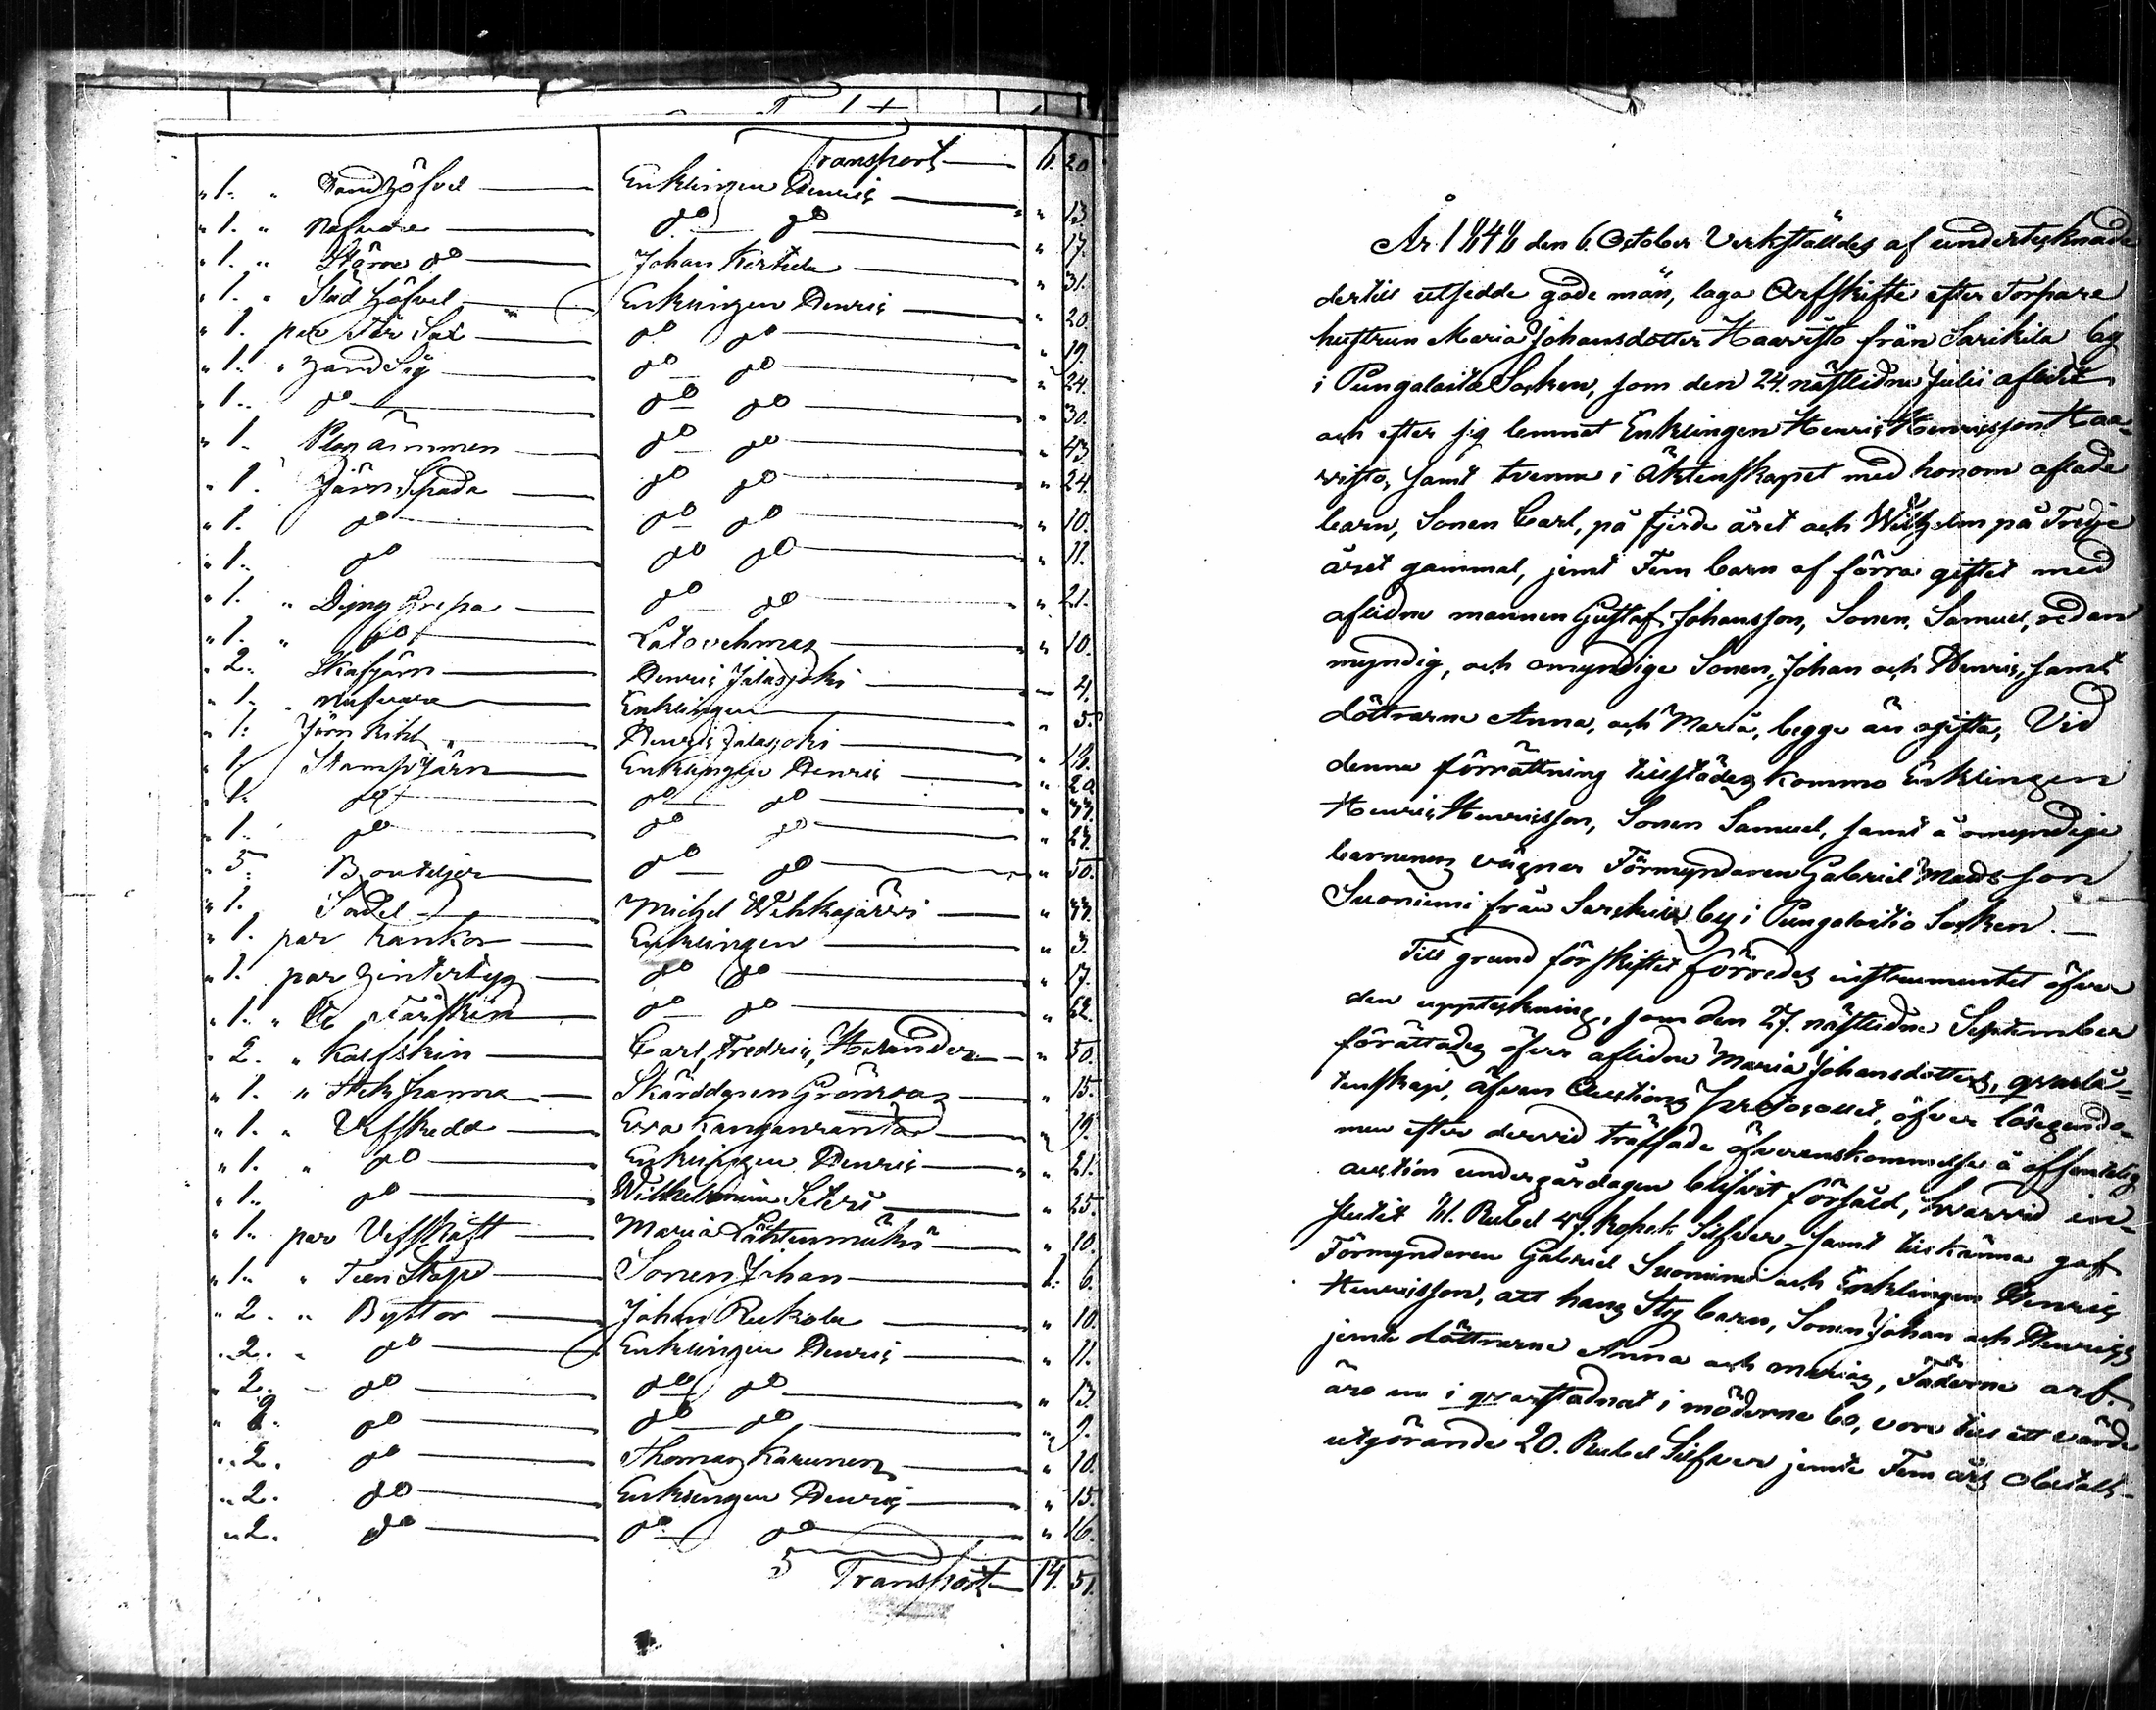 Transport 11. 20
" 1. " Handhöfvel Enklingen Henric " 13.
" 1. " Nafvare do do " 17.
" 1. " Större do Johan Kertula " 31.
" 1. " Släd höfvel Enklingen Henric " 20.
" 1. par Sax do do " 19.
" 1. " Handsåg do do " 24.
" 1. do do do " 30.
" 1. Plog ämmen do do " 43.
" 1. Järn Spada do do " 24.
" 1. do do do " 10.
" 1. do do do " 11.
" 1. " Dyng Grepa do do " 21.
" 1. " do Latovehmas " 10.
" 2. Skafjärn Henric Jalasjoki " 4.
" 1. " Nafvare Enklingen " 5.
" 1. Järn Kihl Henric Jalasjoki " 18.
" 1. Stamp Järn Enklingen Henric " 20.
" 1. do do do "
" 1. do do do "
" 5. Bouteljer do do " 50.
" 1. Sadel Michel Wehkajärvi "
" 1. par Rankor Enklingen " 3.
" 1. par Hintertyg do do " 17.
" 1. " Fårskin do do "
" 2. " Kalfskin Carl Fredric Helander " 50.
" 1. " Stekpanna Skärddgren Grönroos " 15.
" 1. " Vefskedd Eva Kanganranta " 19.
" 1. " do Enklingen Henric " 21.
" 1. do Wilhelmina Seteri " 25.
" 1. par Vefskaft Maria Lähtenmäki " 10.
" 1. " Teen Stop Sonen Johan 1. 6.
" 2. " Byttor Johan Ruckola " 10.
" 2. " do Enklingen Henric " 11.
" 2. do do do " 13.
" 2. do do do " 9.
" 2. do Thomas Karunen " 10.
" 2. do Enklingen Henric " 15.
" 2. do do do " 16.
Transport 14. 51.
År 1848 den 6. October Verkställdes af undertecknade
dertill utsedde gode män, laga Arfskifte efter Torpare
hustrun Maria Johansdotter Haavisto från Sarikila by
i Pungalaitio Socken, som den 24. nästledne Julii aflidit
och efter sig lemnat Enklingen Henric Henricsson Haa-
visto, samt tvenne i äktenskapet med honom aflade
barn, Sonen Carl, på fjerde året och Wilhelm på Tredje
året gammal, jemt Fem barn af förra giftet med
aflidne mannen Gustaf Johansson, Sonen Samuel, redan
myndig, och omyndige Sonen, Johan och Henric, samt
döttrarne Anna, och Maria, begge än ogifta, Vid
denna förrättning tillstädes kommo Enklingen
Henric Henricsson, Sonen Samuel, samt å omyndige
barnenes vägnar Förmyndaren Gabriel Mattsson
Suoniemi från Sarikila by i Pungalaitio Socken.
Till grund för skiftet företedes instrumentet öfver
den uppteckning, som den 27. nästledne September
förättades öfver aflidne Maria Johansdotters, qvarlå-
tenskap, äfven Auctions Protocollet, öfver lösegendo-
men efter dervid träffade öfverenskommelse å offentelig
auction undergårdagen blifvit försåld, hvarvid in-
flutit 41. Rubel 47. Kopek Silfver, samt tillkänna gaf
Förmyndaren Gabriel Suoniemi och Enklingen Henric
Henricsson, att hans Styf barn, Sonen Johan och Henrics
jemte döttrarne Anna och Marias, Fäderne arf
äro nu i qvarstadnat i möderne bo, vore till ett värde
utgörande 20. Rubel Silfver jemte Fem års obetalt